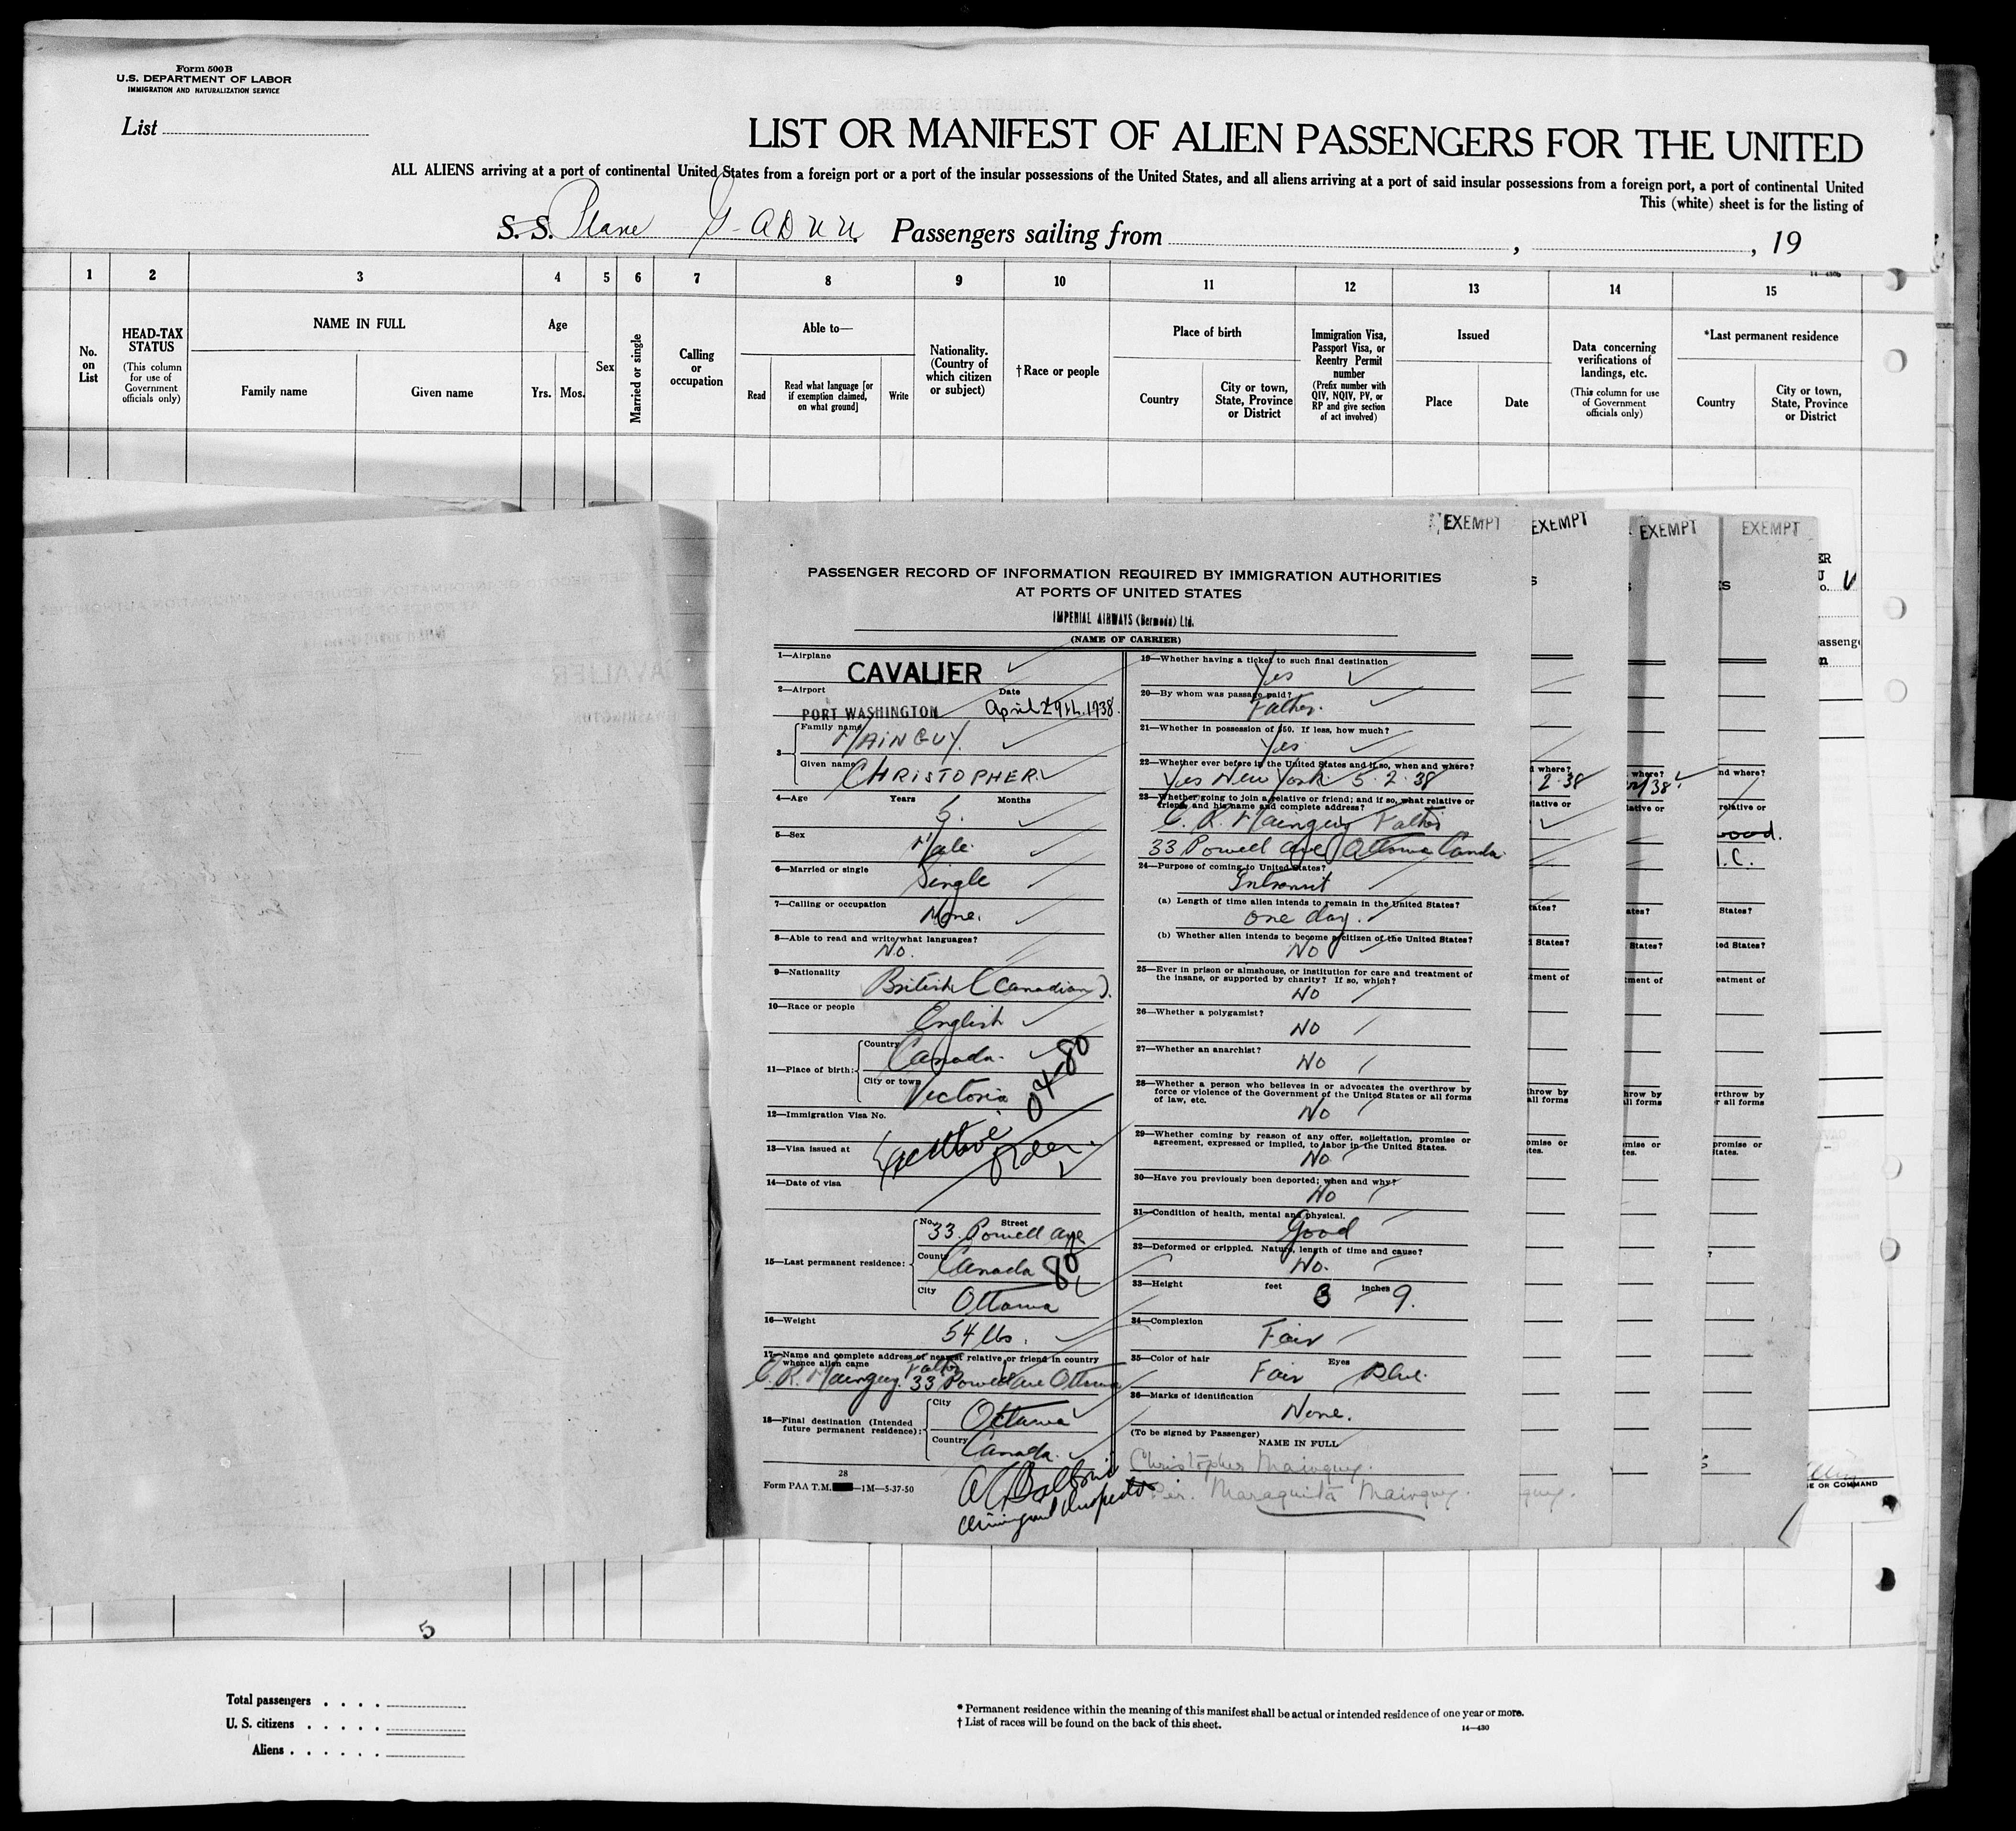 Form 500 B
U.S. DEPARTMENT OF LABOR
IMMIGRATION AND NATURALIZATION SERVICE
List
LIST OR MANIFEST OF ALIEN PASSENGERS FOR THE UNITED
ALL ALIENS arriving at a port of continental United States from a foreign port or a port of the insular possessions of the United States, and all aliens arriving at a port of said insular possessions from a foreign port, a port of continental United
This (white) sheet is for the listing of
S. S. Plane G-ADUU. Passengers sailing from , , 19
14—430b
1 2 3 4 5 6 7 8 9 10 11 12 13 14 15
No. on List
HEAD-TAX STATUS
(This column for use of Government officials only)
NAME IN FULL
Family name
Given name
Age
Yrs.
Mos.
Sex
Married or single
Calling or occupation
Able to—
Read
Read what language [or if exemption claimed, on what ground]
Write
Nationality. (Country of which citizen or subject)
†Race or people
Place of birth
Country
City or town, State, Province or District
Immigration Visa, Passport Visa, or Reentry Permit number
(Prefix number with QIV, NQIV, PV, or RP and give section of act involved)
Issued
Place
Date
Data concerning verifications of landings, etc.
(This column for use of Government officials only)
*Last permanent residence
Country
City or town, State, Province or District
EXEMPT EXEMPT EXEMPT EXEMPT
PASSENGER RECORD OF INFORMATION REQUIRED BY IMMIGRATION AUTHORITIES
AT PORTS OF UNITED STATES
IMPERIAL AIRWAYS (Bermuda) Ltd.
(NAME OF CARRIER)
1—Airplane CAVALIER
2—Airport PORT WASHINGTON Date April 29th. 1938.
3— Family name MAINGUY.
Given name CHRISTOPHER.
4—Age Years 5. Months
5—Sex Male.
6—Married or single Single
7—Calling or occupation None.
8—Able to read and write what languages?
No.
9—Nationality British (Canadian).
10—Race or people English
11—Place of birth: Country Canada.
City or town Victoria
04-80
12—Immigration Visa No.
13—Visa issued at Executive Order.
14—Date of visa
15—Last permanent residence: No. Street 33. Powell Ave
Country Canada 80
City Ottawa
16—Weight 54 lbs.
17—Name and complete address of nearest relative or friend in country
whence alien came Father
E. R. Mainguy. 33 Powell Ave Ottawa
18—Final destination (Intended future permanent residence): City Ottawa
Country Canada.
28
Form PAA T.M. —1M—5-37-50
Immigrant Inspector
19—Whether having a ticket to such final destination
Yes
20—By whom was passage paid?
Father.
21—Whether in possession of $50. If less, how much?
Yes
22—Whether ever before in the United States and if so, when and where?
Yes New York 5·2·38
23—Whether going to join a relative or friend; and if so, what relative or
friend and his name and complete address?
E. R. Mainguy Father
33 Powell Ave Ottawa Canda
24—Purpose of coming to United States?
Intransit
(a) Length of time alien intends to remain in the United States?
one day.
(b) Whether alien intends to become a citizen of the United States?
NO
25—Ever in prison or almshouse, or institution for care and treatment of
the insane, or supported by charity? If so, which?
NO
26—Whether a polygamist?
NO
27—Whether an anarchist?
NO
28—Whether a person who believes in or advocates the overthrow by
force or violence of the Government of the United States or all forms
of law, etc.
No
29—Whether coming by reason of any offer, solicitation, promise or
agreement, expressed or implied, to labor in the United States.
No
30—Have you previously been deported; when and why?
No
31—Condition of health, mental and physical.
Good
32—Deformed or crippled. Nature, length of time and cause?
No.
33—Height feet 3 inches 9.
34—Complexion
Fair
35—Color of hair Fair Eyes Blue.
36—Marks of identification
None.
(To be signed by Passenger)
NAME IN FULL
Christopher Mainguy.
Per. Maraquita Mainguy.
d where? where? nd where?
2·38 38
relative or
ood.
I.C.
States?
ted States?
eatment of
erthrow by
r all forms
promise or
States.
guy.
E OR COMMAND
5
Total passengers . . . .
U. S. citizens . . . . .
Aliens . . . . . .
* Permanent residence within the meaning of this manifest shall be actual or intended residence of one year or more.
† List of races will be found on the back of this sheet.
14—430